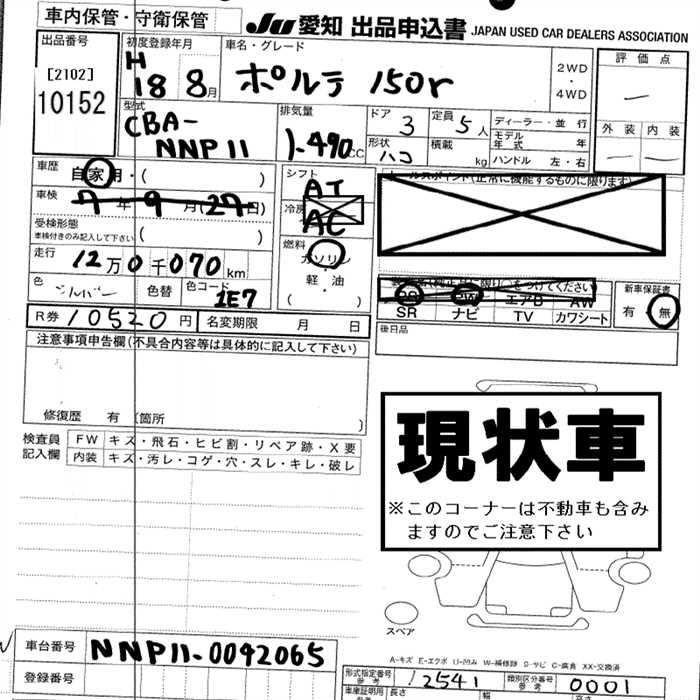 車内保管・守衛保管
JU 愛知 出品申込書 JAPAN USED CAR DEALERS ASSOCIATION
出品番号
[2102]
10152
初度登録年月
H
18 8月
車名・グレード
ポルテ 150r
2WD
・
4WD
評価点
—
外装 内装
— —
型式
CBA-
NNP11
排気量
1.490cc
ドア 3
定員 5人
形状 ハコ
積載 kg
ディーラー・並行
モデル年式 年
ハンドル 左・右
車歴 自家用・( )
車検 7年 9月(27日)
受検形態
車検付きのみ記入して下さい ( )
走行 12万0千070km
色 シルバー
色替
色コード
1E7
シフト
AT
冷房
AC
燃料
ガソリン
軽・油
( ・ )
セールスポイント(正常に機能するものに限ります)
をつけてください
PS PW エアB AW
SR ナビ TV カワシート
新車保証書
有・無
R券 10520円
名変期限 月 日
後日品
注意事項申告欄(不具合内容等は具体的に記入して下さい)
修復歴 有 (箇所 )
検査員
記入欄
FW キズ・飛石・ヒビ割・リペア跡・X要
内装 キズ・汚レ・コゲ・穴・スレ・キレ・破レ
現状車
※このコーナーは不動車も含み
ますのでご注意下さい
スペア
A-キズ E-エクボ U-凹み W-補修跡 S-サビ C-腐食 XX-交換済
車台番号 NNP11-0042065
登録番号
形式指定番号
参考
12541
類別区分番号
参考
0001
車庫証明用
参考
長さ 幅 高さ